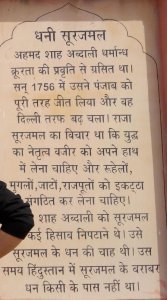 धनी सूरजमल
अहमद शाह अब्दाली धर्मान्ध
क्रूरता की प्रवृति से ग्रसित था।
सन् 1756 में उसने पंजाब को
पूरी तरह जीत लिया और वह
दिल्ली तरफ बढ़ चला। राजा
सूरजमल का विचार था कि युद्ध
का नेतृत्व वजीर को अपने हाथ
में लेना चाहिए और रूहेलों,
मुगलों,जाटों,राजपूतों को इकट्ठा
संगठित कर लेना चाहिए।
शाह अब्दाली को सूरजमल
कई हिसाब निपटाने थे। उसे
सूरजमल के धन की चाह थी। उस
समय हिंदुस्तान में सूरजमल के बराबर
धन किसी के पास नहीं था।